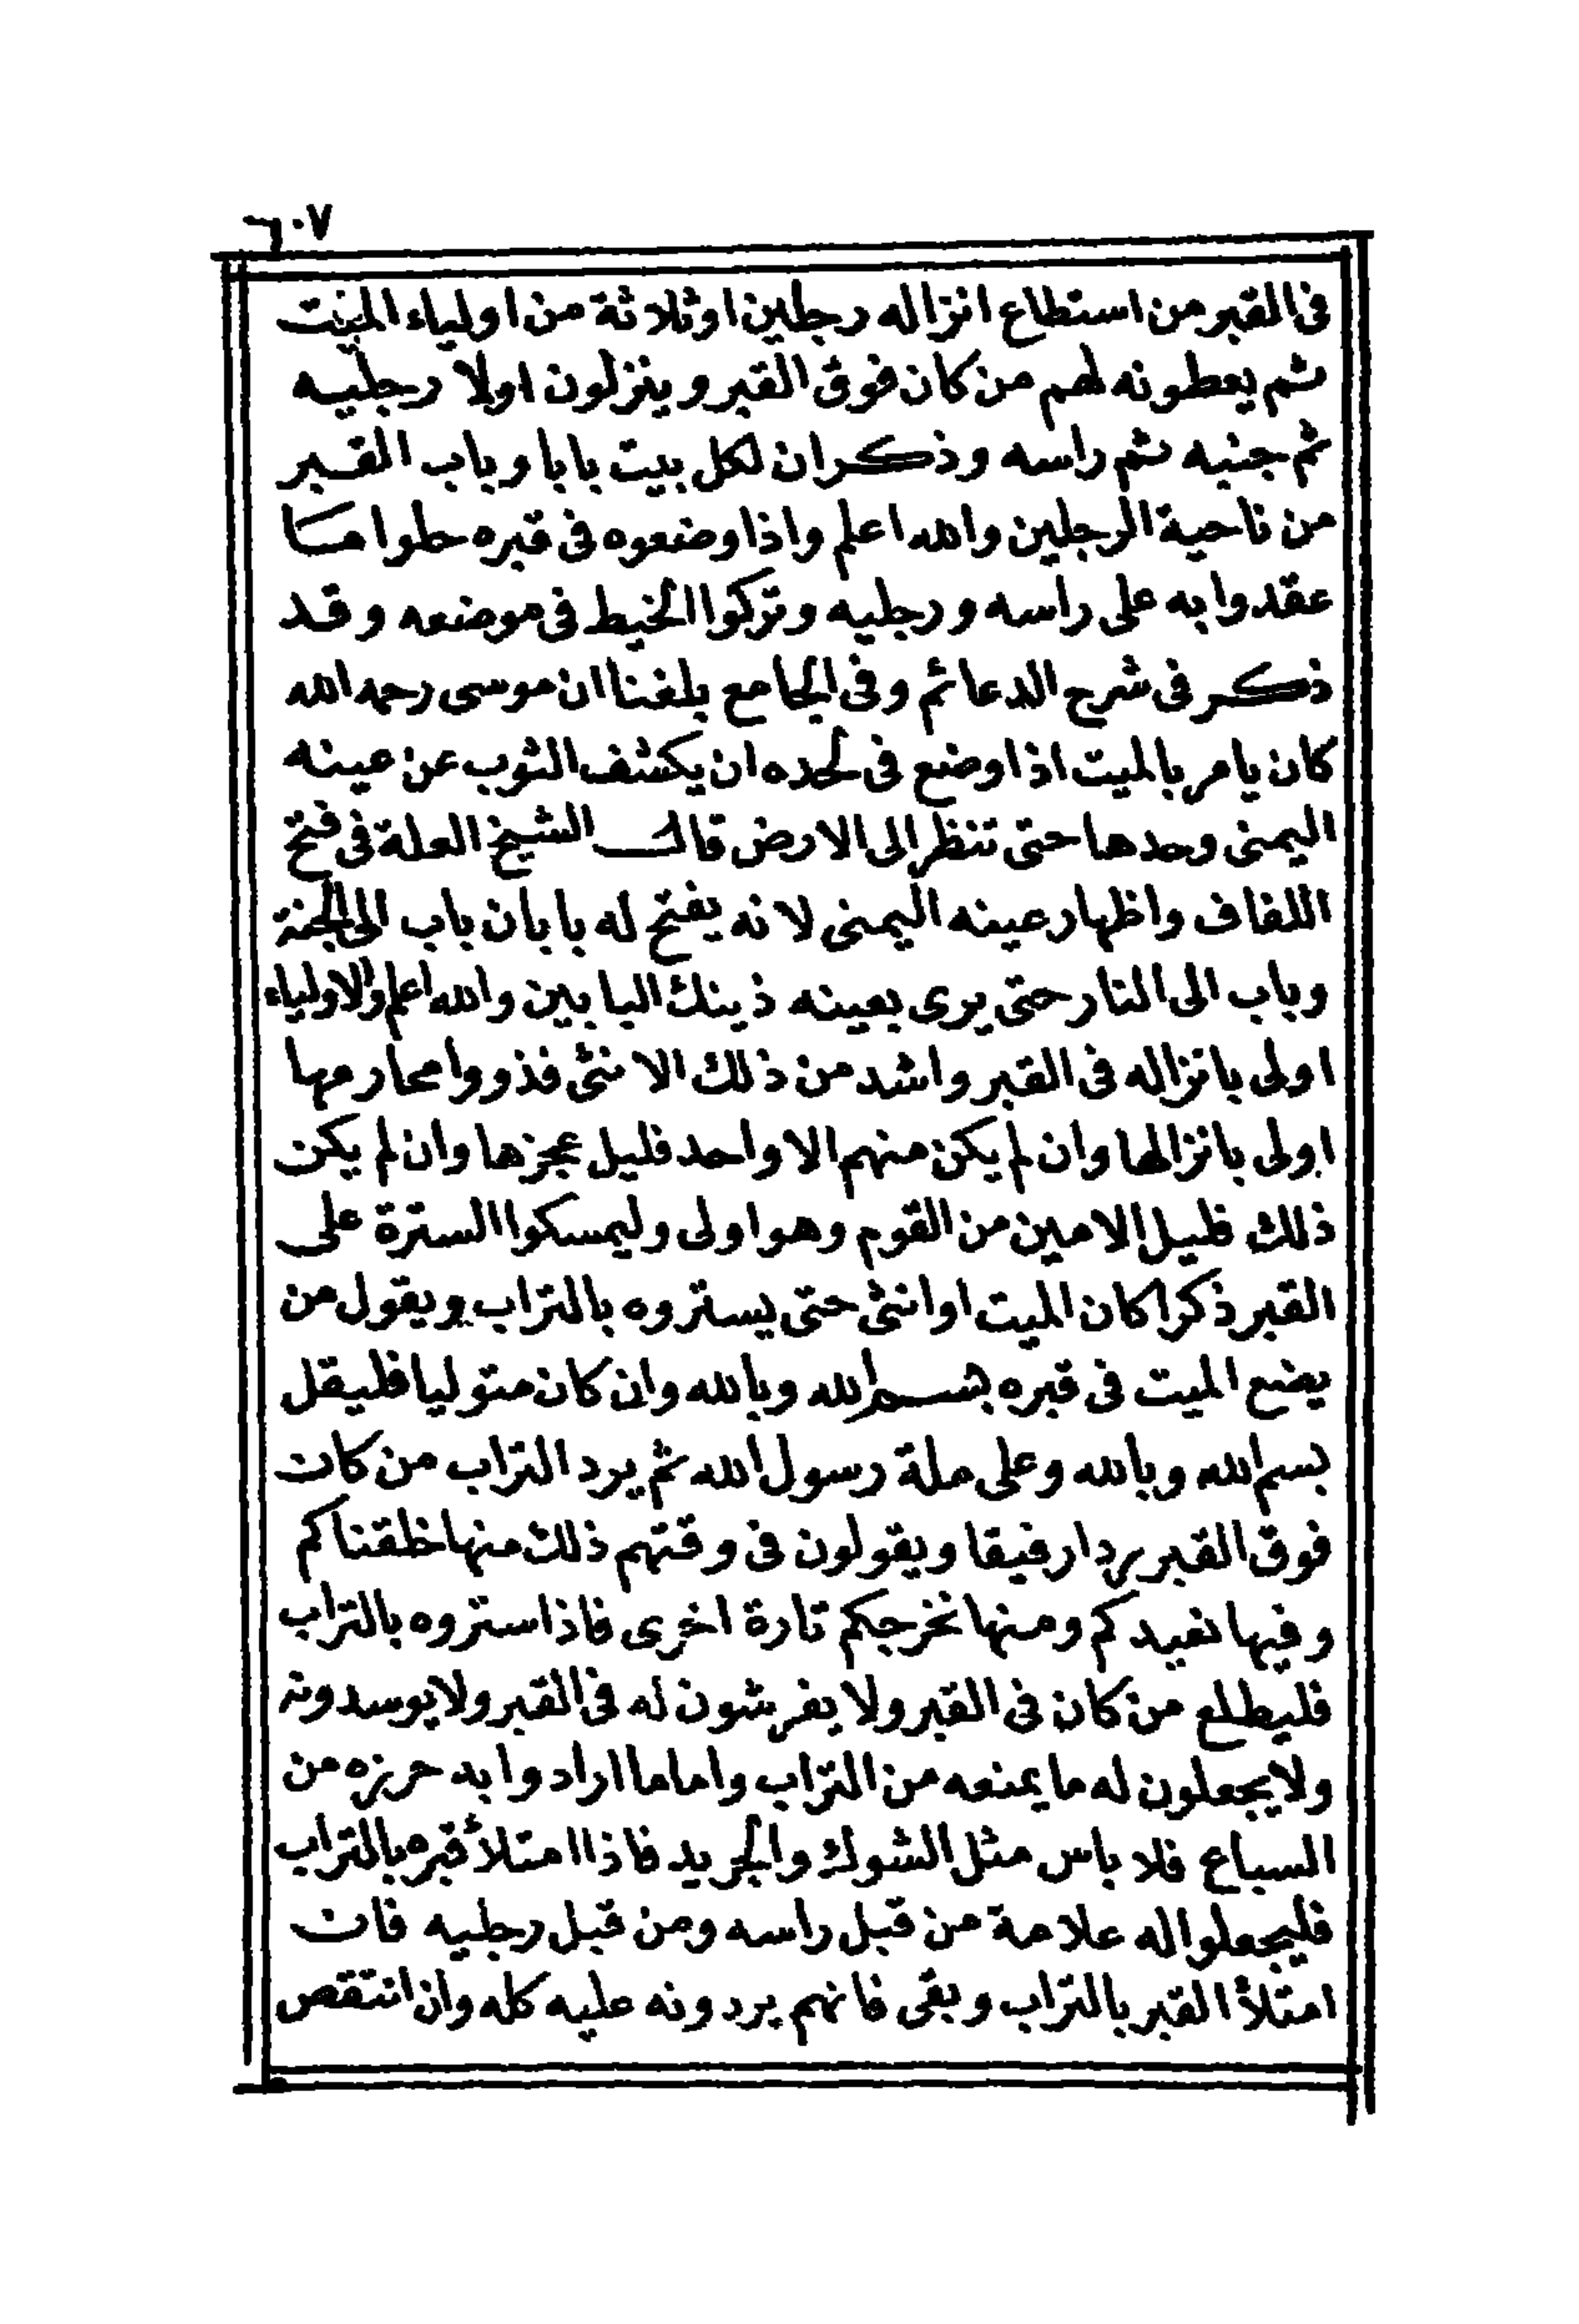 ٦٠٧
فى القبر من استطاع انزاله رجلين او ثلاثة من اولياء الميت
ثم يعطونه لهم من كان فوق القبر وينزلون اولا رجليه
ثم جنبه ثم راسه وذكر ان لكل بيت بابا وباب القبر
من ناحية الرجلين والله اعلم واذا وضعوه فى قبره حلوا مـا
عقدوا به على راسه ورجليه وتركوا الخيط فى موضعه وقد
ذكر فى شرح الدعائم وفى الجامع بلغنا ان موسى رحمه الله
كان يامر بالميت اذا وضع فى لحده ان يكشف الثوب عن عينه
اليمنى وحدها حتى تنظر الى الارض قال الشيخ العلة فى فتح
اللفاف واظهار عينه اليمنى لانه يفتح له بابان باب الى الجنة
وباب الى النار حتى يرى بعينه ذينك البابين والله اعلم والاولياء
اولى بانزاله فى القبر واشد من ذلك الانثى فذووا محارمها
اولى بانزالها وان لم يكن منهم الا واحد فليل عجزها وان لم يكن
ذلك فليل الامين من القوم وهو اولى وليمسكوا السترة على
القبر ذكرا كان الميت او انثى حتى يستروه بالتراب ويقول من
يضع الميت فى قبره بسم الله وبالله وان كان متوليا فليقل
بسم الله وبالله وعلى ملة رسول الله ثم يرد التراب من كان
فوق القبر ردا رفيقا ويقولون فى وقتهم ذلك منها خلقناكم
وفيها نعيدكم ومنها نخرجكم تارة اخرى فاذا ستروه بالتراب
فليطلع من كان فى القبر ولا يفرشون له فى القبر ولا يوسدونه
ولا يجعلون له ما يمنعه من التراب واما ما ارادوا به حرزه من
السباع فلا باس مثل الشوك والجريد فاذا امتلأ قبره بالتراب
فليجعلوا له علامة من قبل راسه ومن قبل رجليه فان
امتلأ القبر بالتراب وبقى فانهم يردونه عليه كله وان انتقص